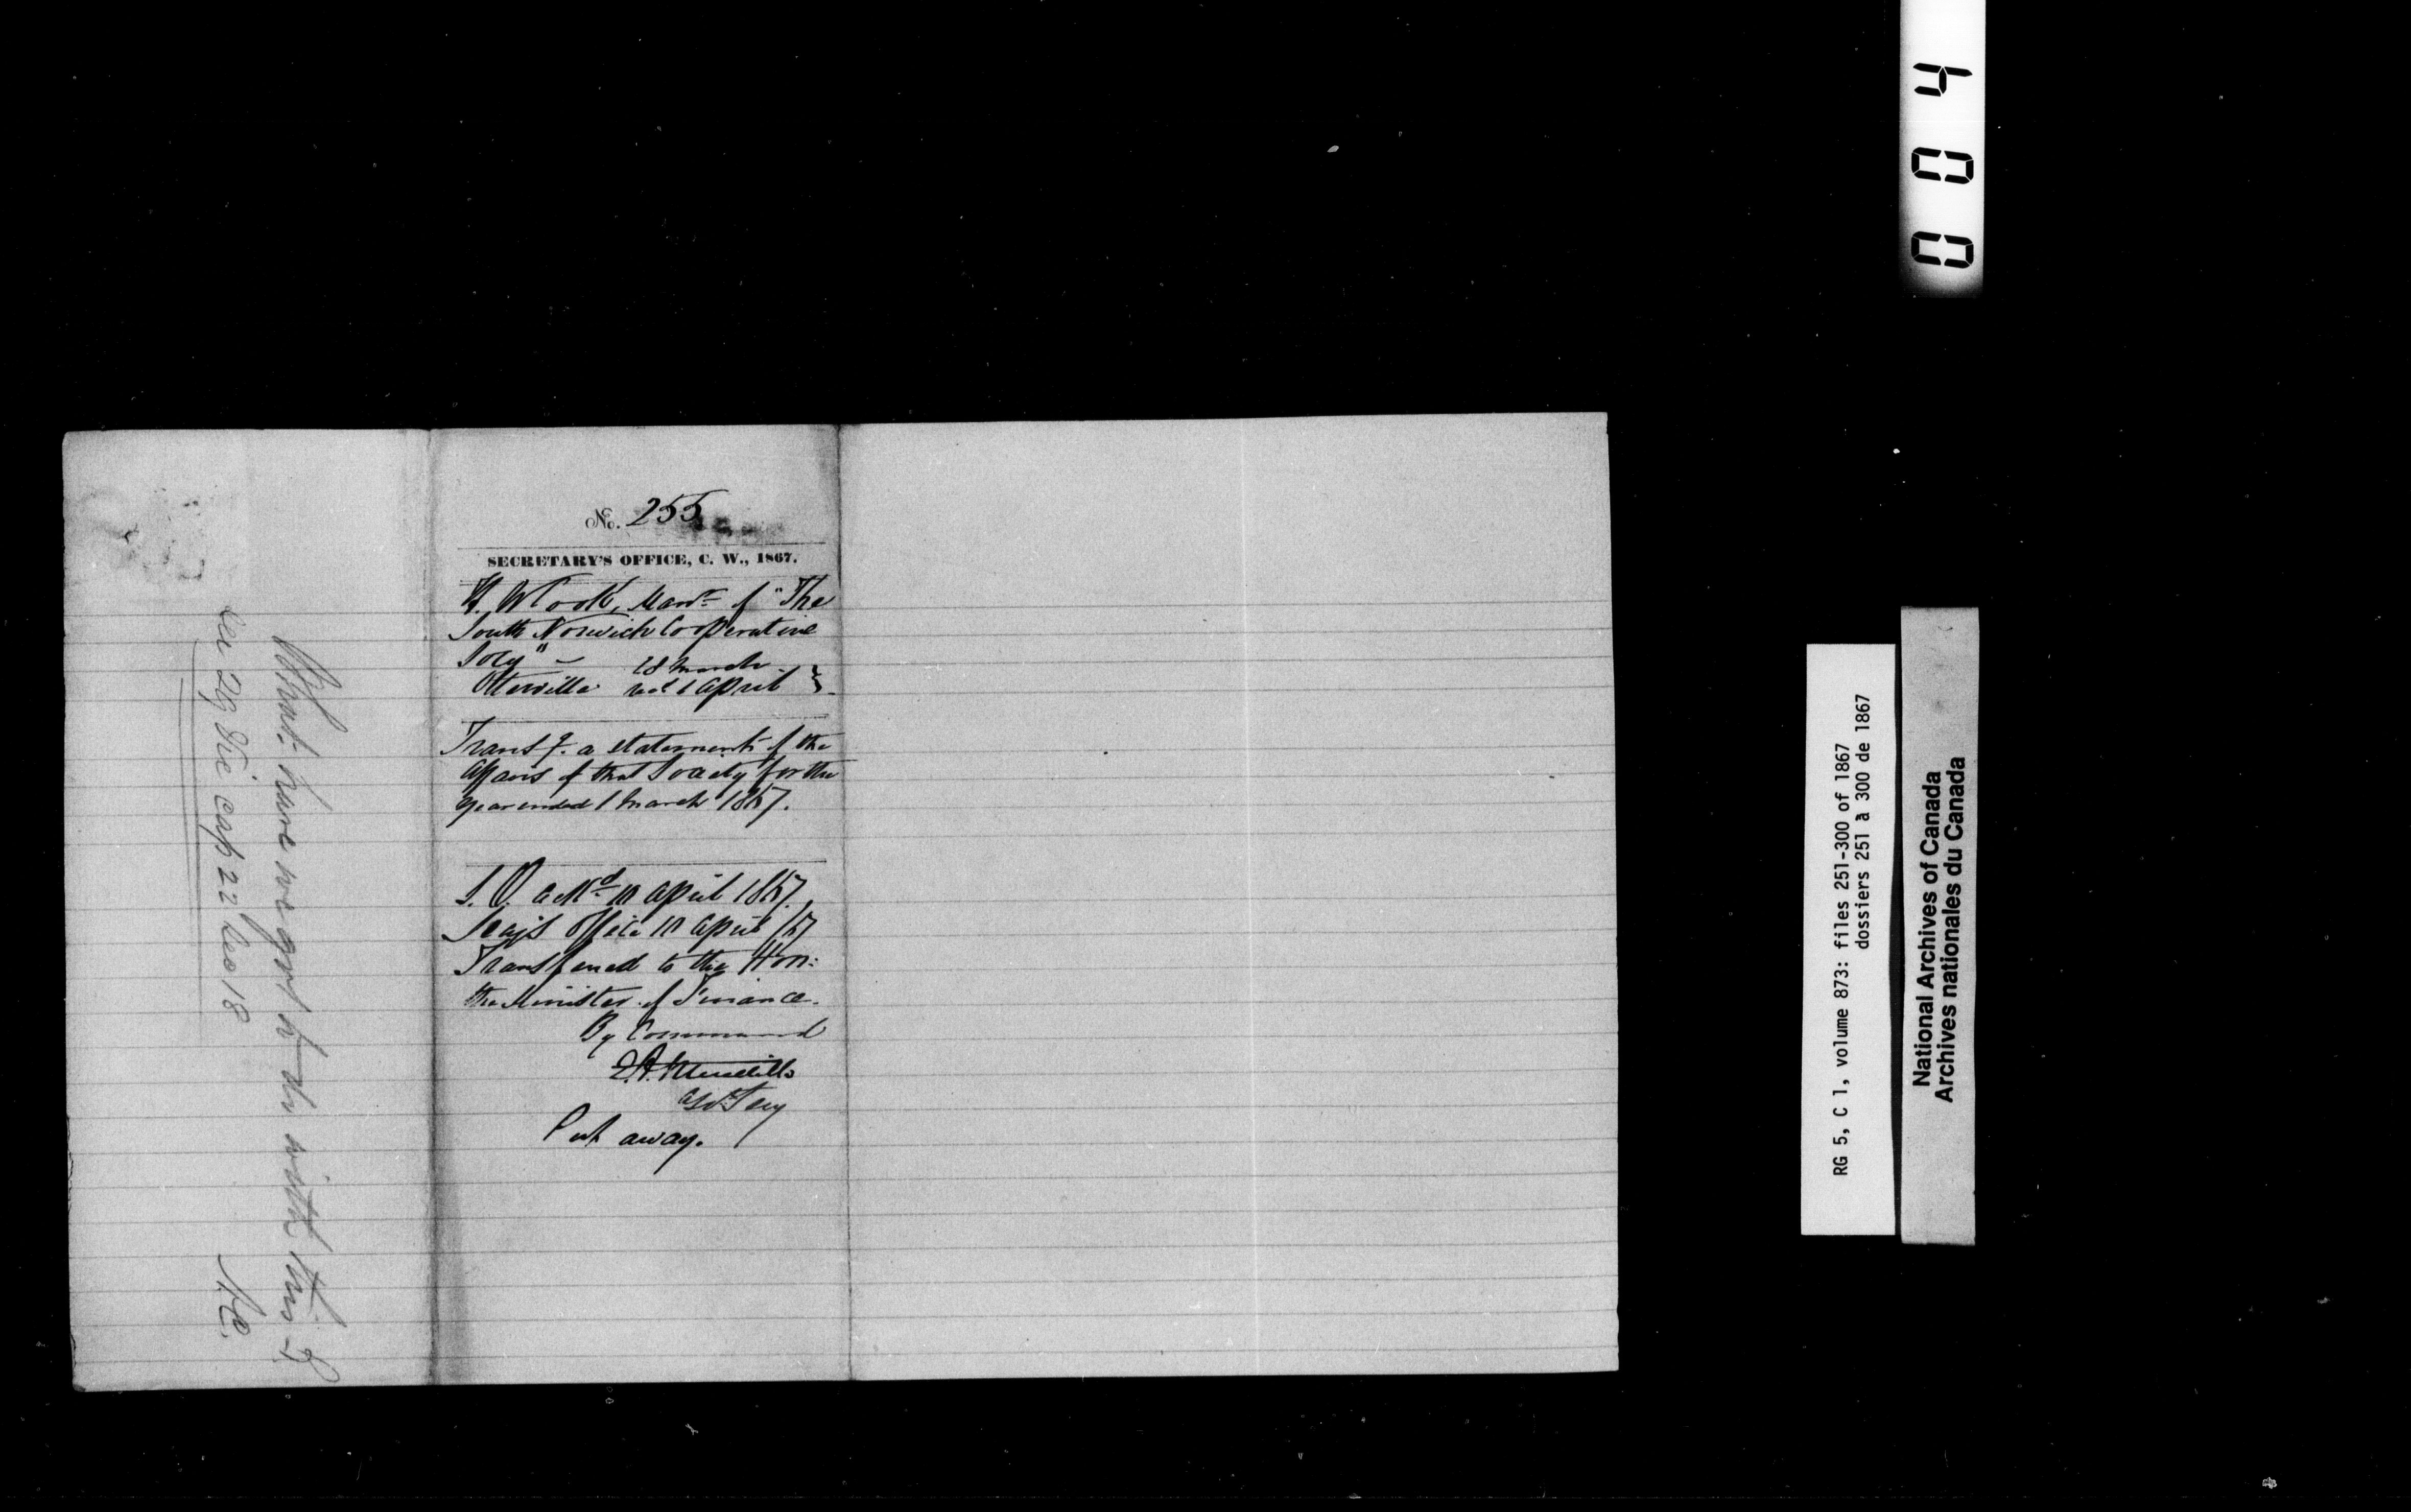 No. 255
SECRETARY'S OFFICE, C. W., 1867.
H. W Cook, Manr. of "The
South Norwich Cooperative
Socy" –
Otterville
18 March
recd 1 April
Transg. a statement of the
affairs of that Society for the
year ended 1 March 1867.
Ackd 10 April 1867.
Secy's Office 10 April /67
Transferred to the Hon:
the Minister of Finance.
By Command
E. A. Meredith
Asst Secy
Put away.
What have we got to do with this?
29 Vic cap 22 sec 18
004
RG 5, C 1, volume 873: files 251-300 of 1867
dossiers 251 à 300 de 1867
National Archives of Canada
Archives nationales du Canada